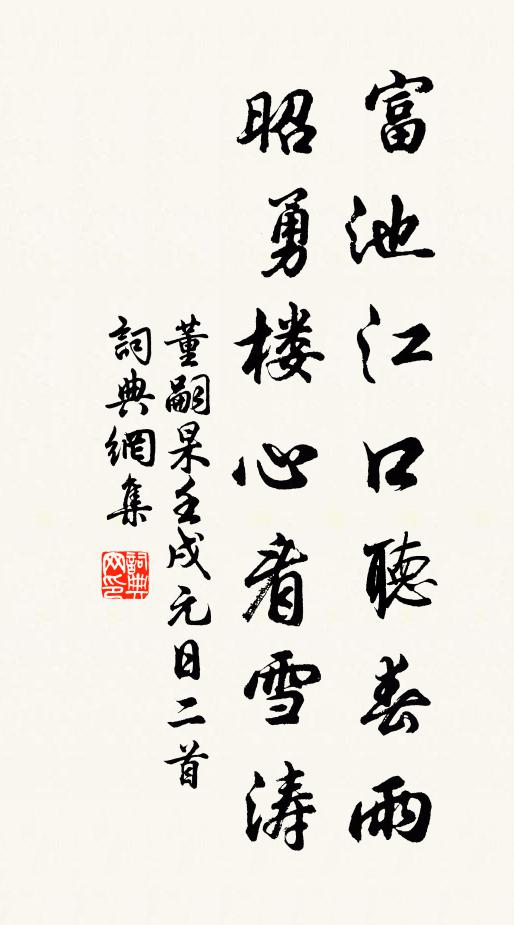 富池江口聽春雨
昭勇楼心看雪涛
董嗣杲壬戌元日二首
詞典網集
詞典网印